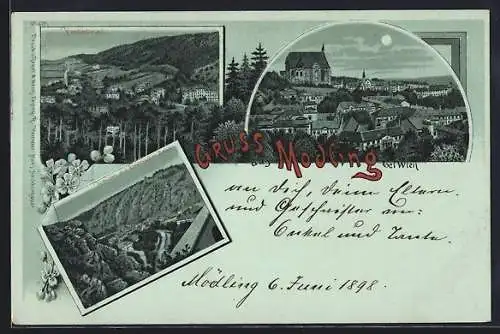 GRUSS
aus Mödling
bei Wien
an dich, deine Eltern
und Geschwister von:
Onkel und Tante.
Mödling 6. Juni 1898.